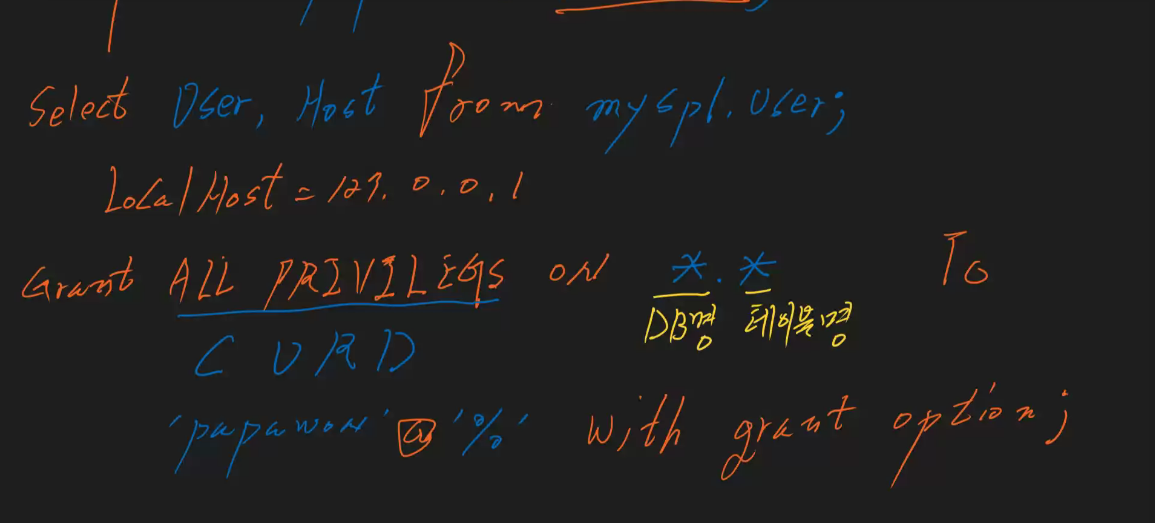 Select User, Host from mysql.User;
LocalHost = 127.0.0.1
Grant ALL PRIVILEGS ON *.* To
DB명 테이블명
C U R D
'papawon'@'%' with grant option;